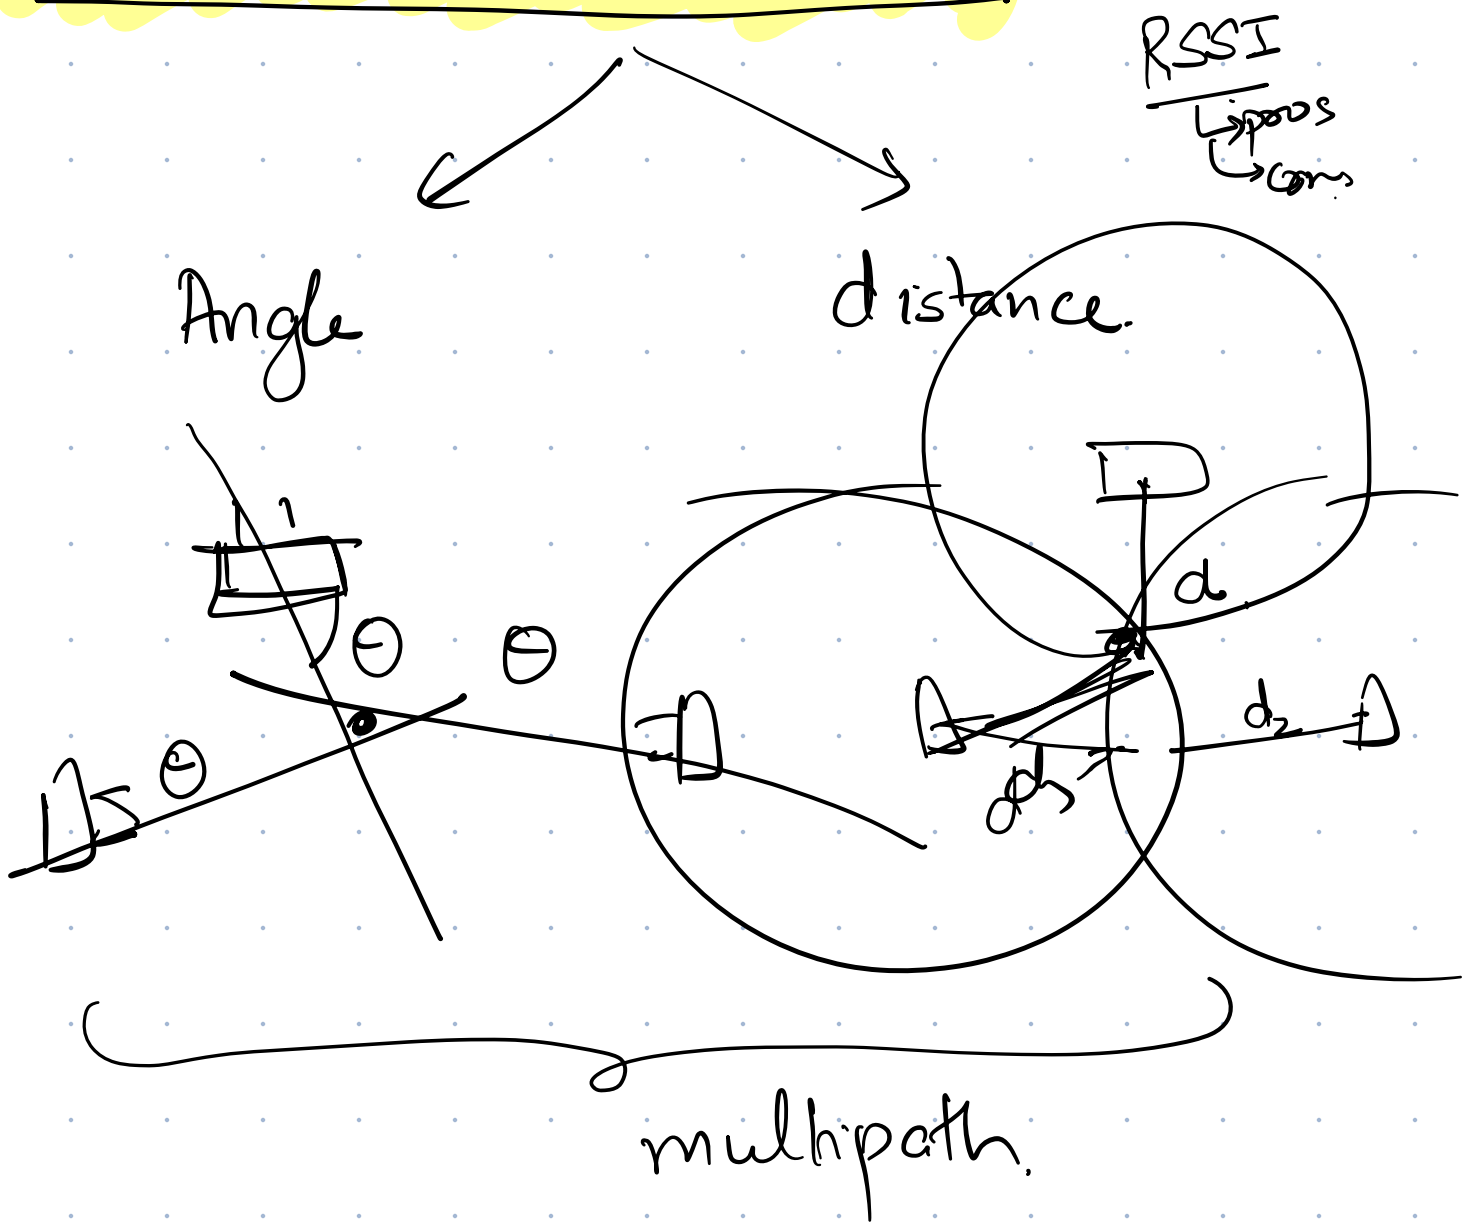 RSSI
pros
cons
Angle
distance.
θ
θ
θ
d
d2
d3
multipath.